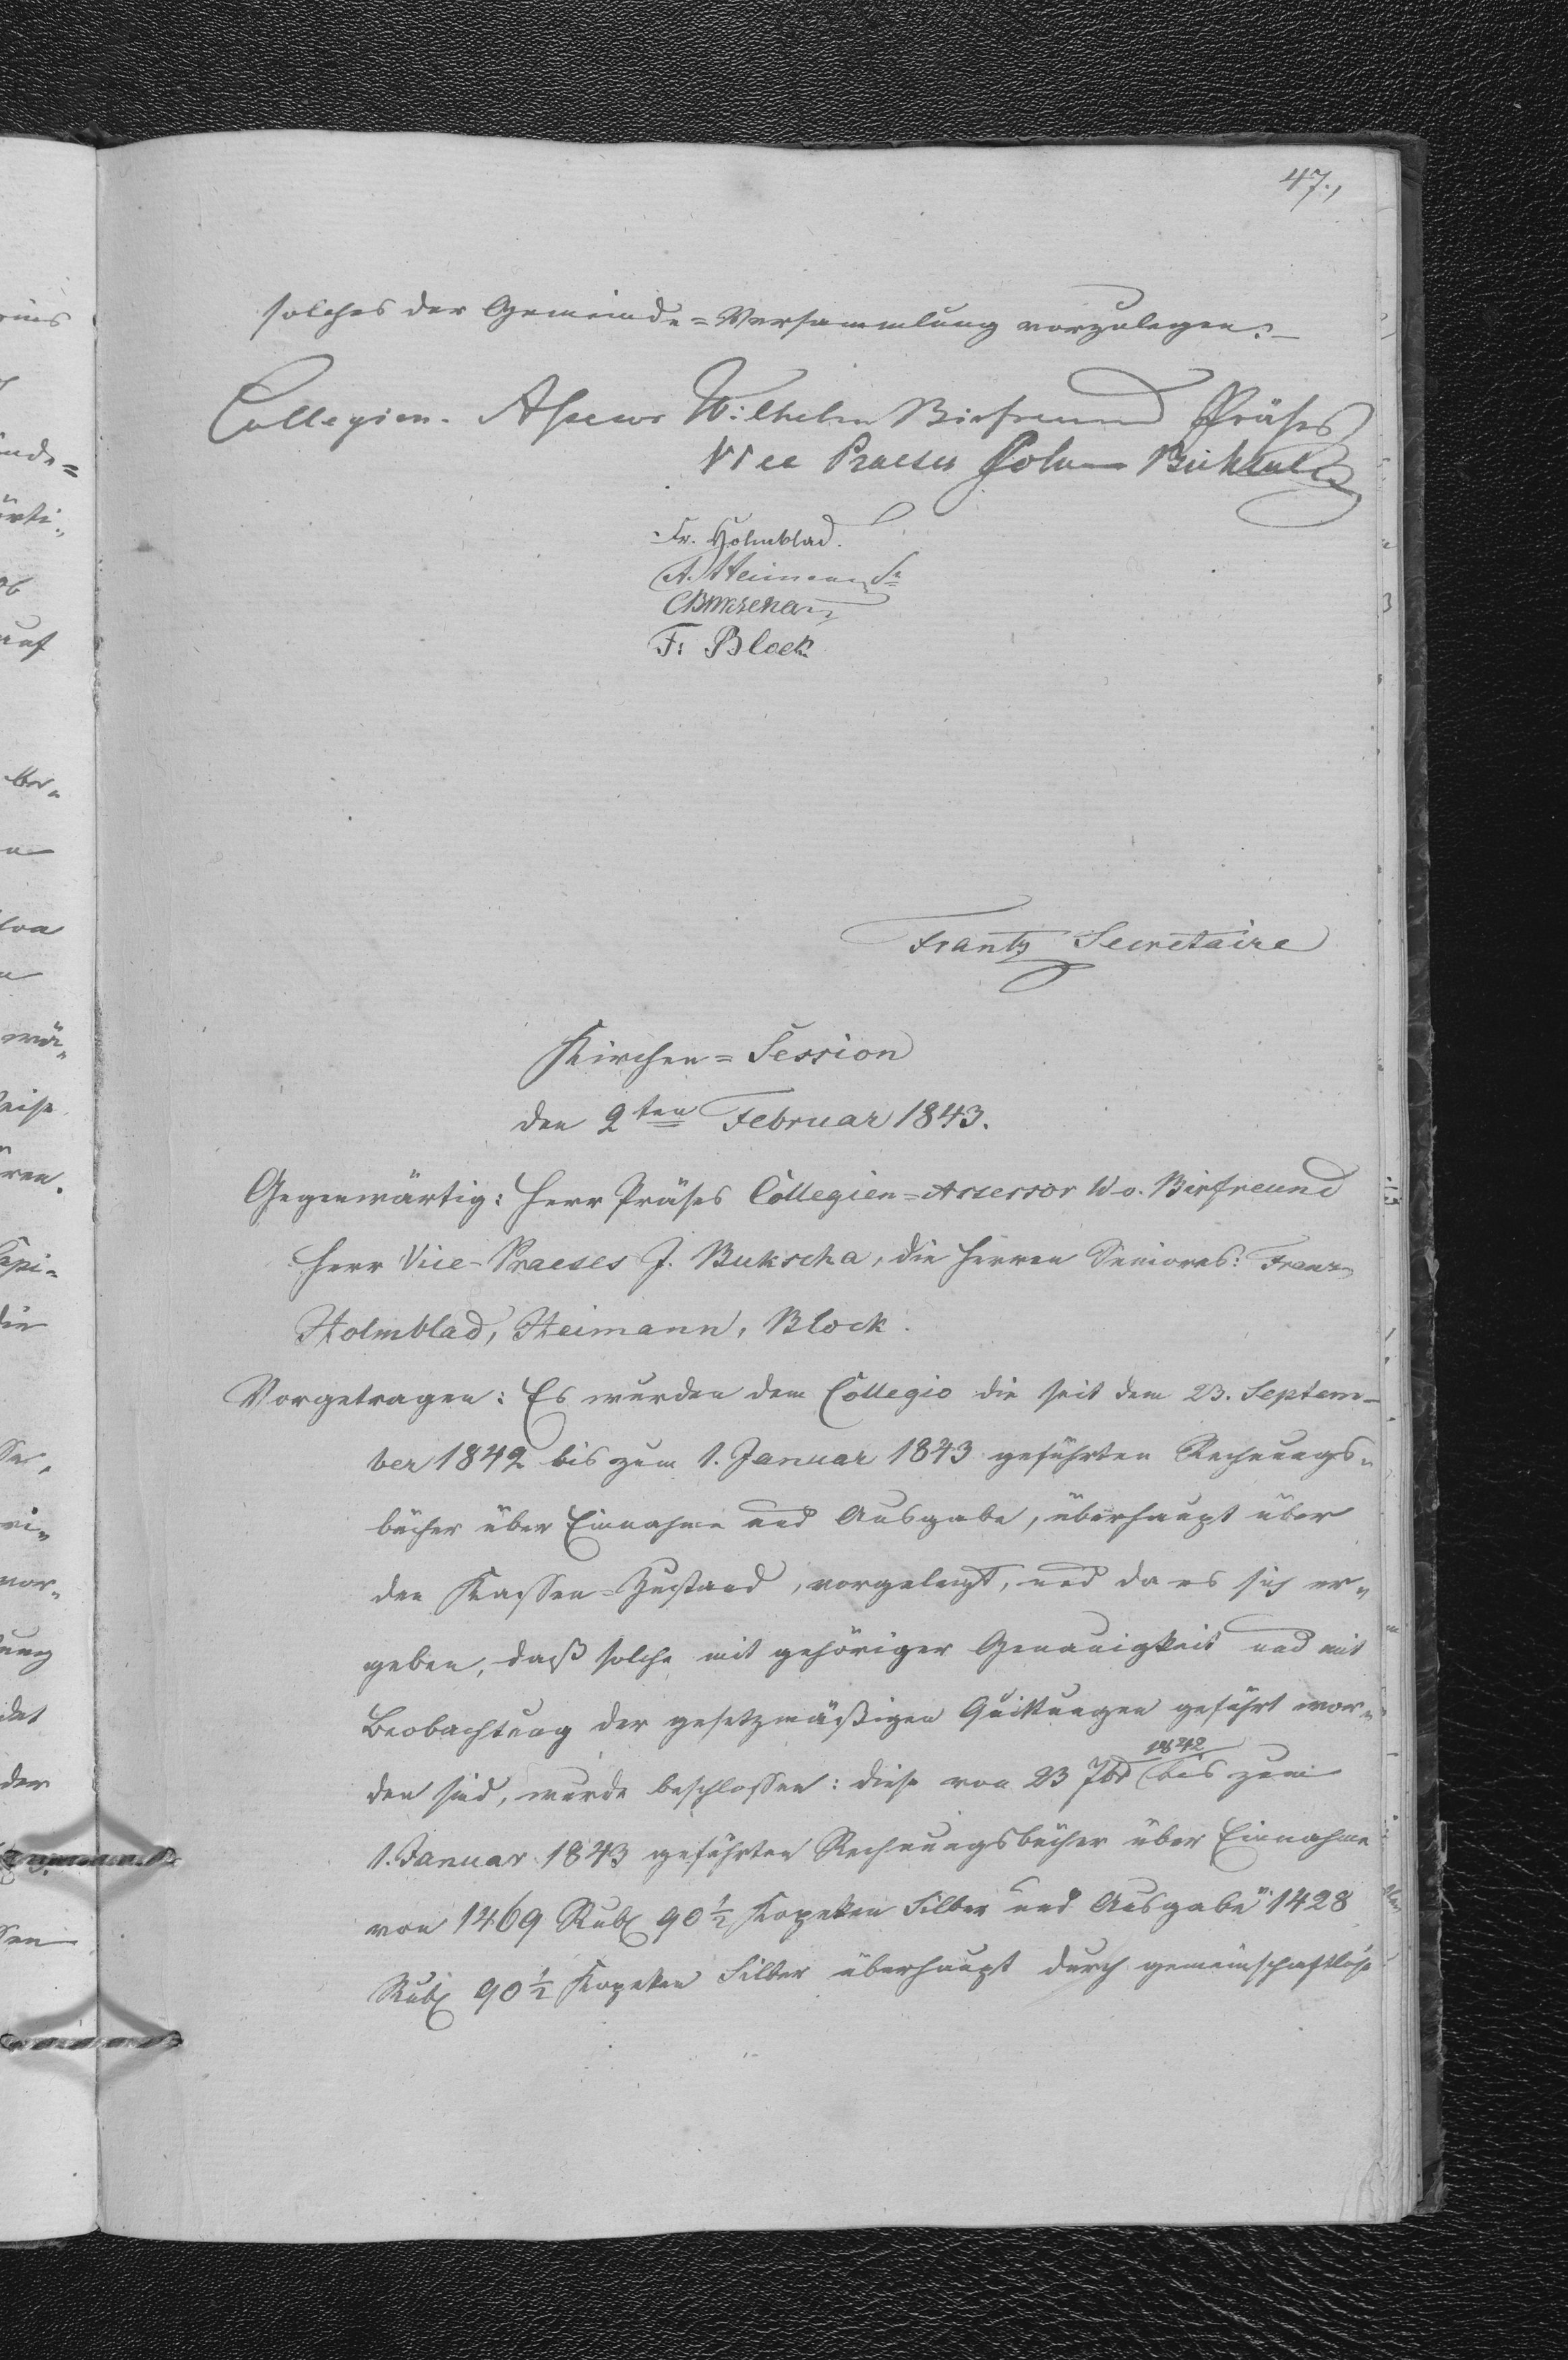 47.,
solches der Gemeinde=Versammlung vorzulegen.–
Collegien-Assessor Wilhelm Birfreund Präses
Vice Praeses Johann
Fr. Holmblad.
A. Heimann Sr
F: Block
Frantz Secretaire
Kirchen=Session
den 2ten Februar 1843.
Gegenwärtig: Herr Präses Collegien=Assessor W. v. Birfreund
Herr Vice-Praeses J. Bukscha, die Herren Seniores: Franz
Holmblad, Heimann, Block.
Vorgetragen: Es wurden dem Collegio die seit dem 23. Septem-
ber 1842 bis zum 1. Januar 1843 geführten Rechnungs-
bücher über Einnahme und Ausgabe, überhaupt über
den Kassen=Zustand, vorgelegt, und da es sich er-
geben, daß solche mit gehöriger Genauigkeit und mit
Beobachtung der gesetzmäßigen Quittungen geführt wor-
den sind, wurde beschlossen: diese von 23 7br 1842 bis zum
1. Januar 1843 geführten Rechnungsbücher über Einnahme
von 1469 Rub 90½ Kopeken Silber und Ausgabe 1428
Rub 90½ Kopeken Silber überhaupt durch gemeinschaftliche